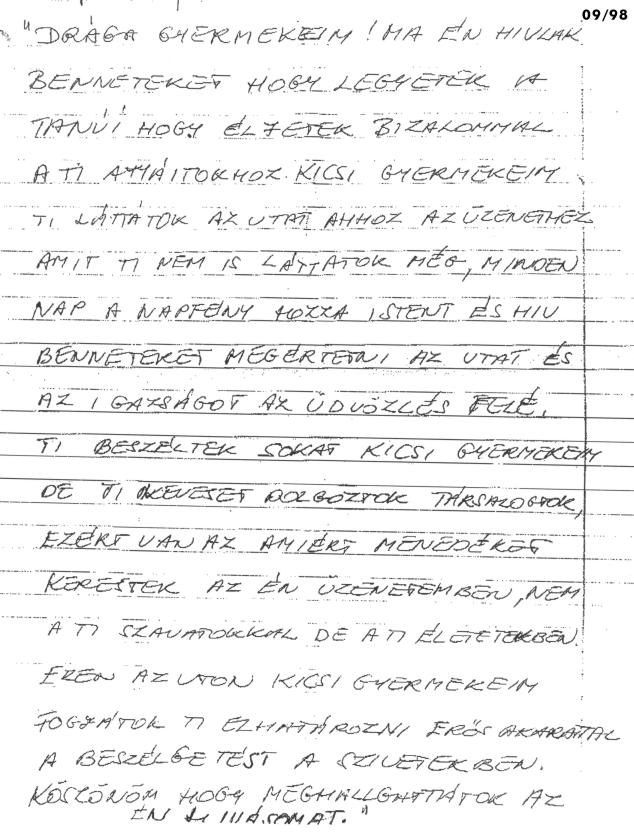 09/98
"DRÁGA GYERMEKEIM! MA ÉN HIVLAK
BENNETEKET HOGY LEGYETEK A
TANÚI HOGY ÉLJETEK BIZALOMMAL
A TI ATYÁITOKHOZ. KICSI GYERMEKEIM
TI LÁTTÁTOK AZ UTAT AHHOZ AZ ÜZENETHEZ
AMIT TI NEM IS LÁTTATOK MÉG, MINDEN
NAP A NAPFÉNY HOZZA ISTENT ÉS HIV
BENNETEKET MEGÉRTETNI AZ UTAT ÉS
AZ IGAZSÁGOT AZ ÜDVÖZLÉS FELÉ.
TI BESZÉLTEK SOKAT KICSI GYERMEKEIM
DE TI KEVESET DOLGOZTOK TÁRSALOGTOK,
EZÉRT VAN AZ AMIÉRT MENEDÉKET
KERESTEK AZ ÉN ÜZENETEMBEN, NEM
A TI SZAVATOKKAL DE A TI ÉLETETEKBEN.
EZEN AZ UTON KICSI GYERMEKEIM
FOGJÁTOK TI ELHATÁROZNI ERŐS AKARATTAL
A BESZÉLGETÉST A SZIVETEKBEN.
KÖSZÖNÖM HOGY MEGHALLGATTÁTOK AZ
ÉN HIVÁSOMAT."